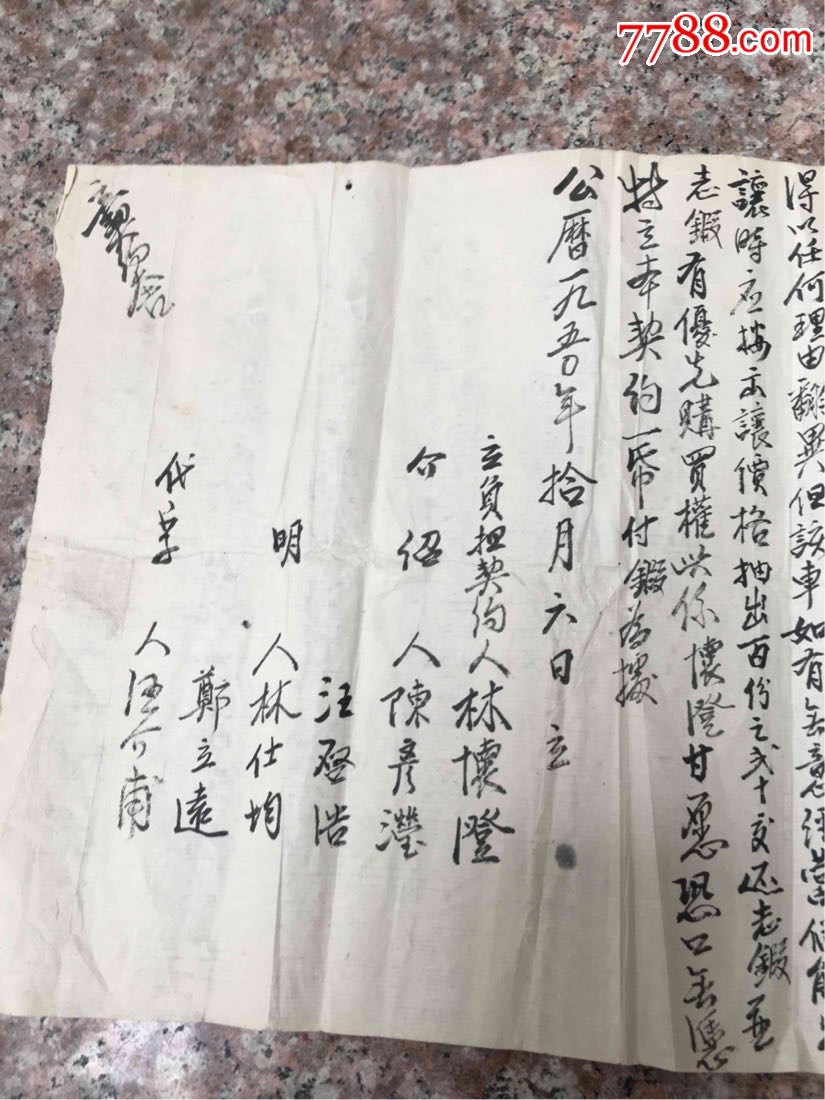 7788.com
得以任何理由翻異但該車如有無意經營
讓時應按示讓價格抽出百份之弍十交还志鍜並
志鍜有優先購買權此係懷澄甘愿恐口無憑
特立本契約一帋付鍜為據
公曆一九五〇年拾月六日 立
立負担契約人林懷澄
介紹人陳彥瀅
汪啓浩
明人林仕均
鄭立遠
代草人汪介甫